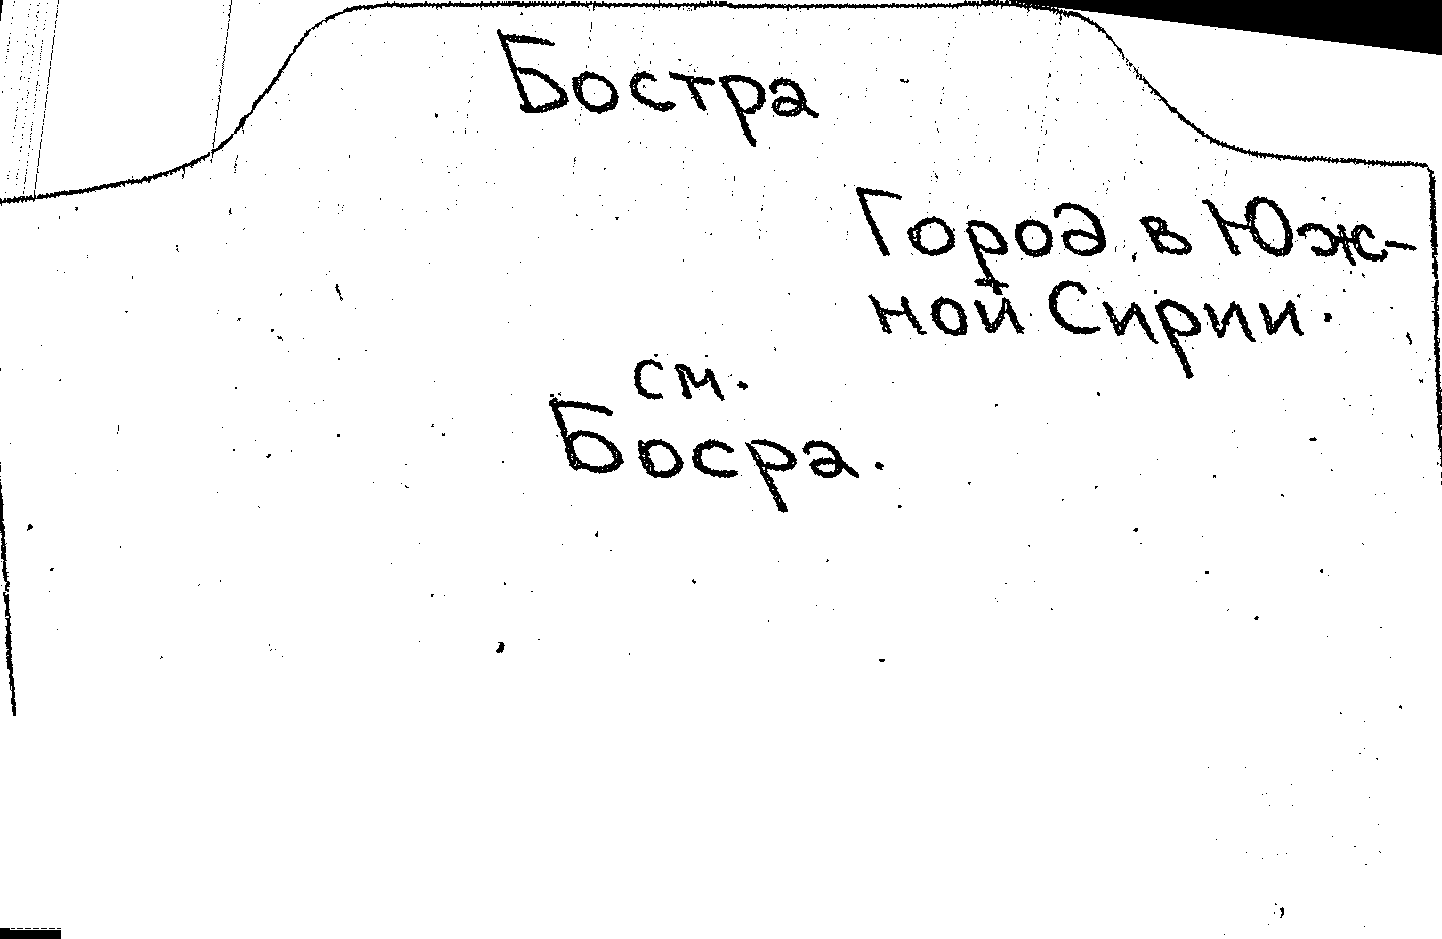 Бостра
Город в Юж-
ной Сирии.
см.
Босра.